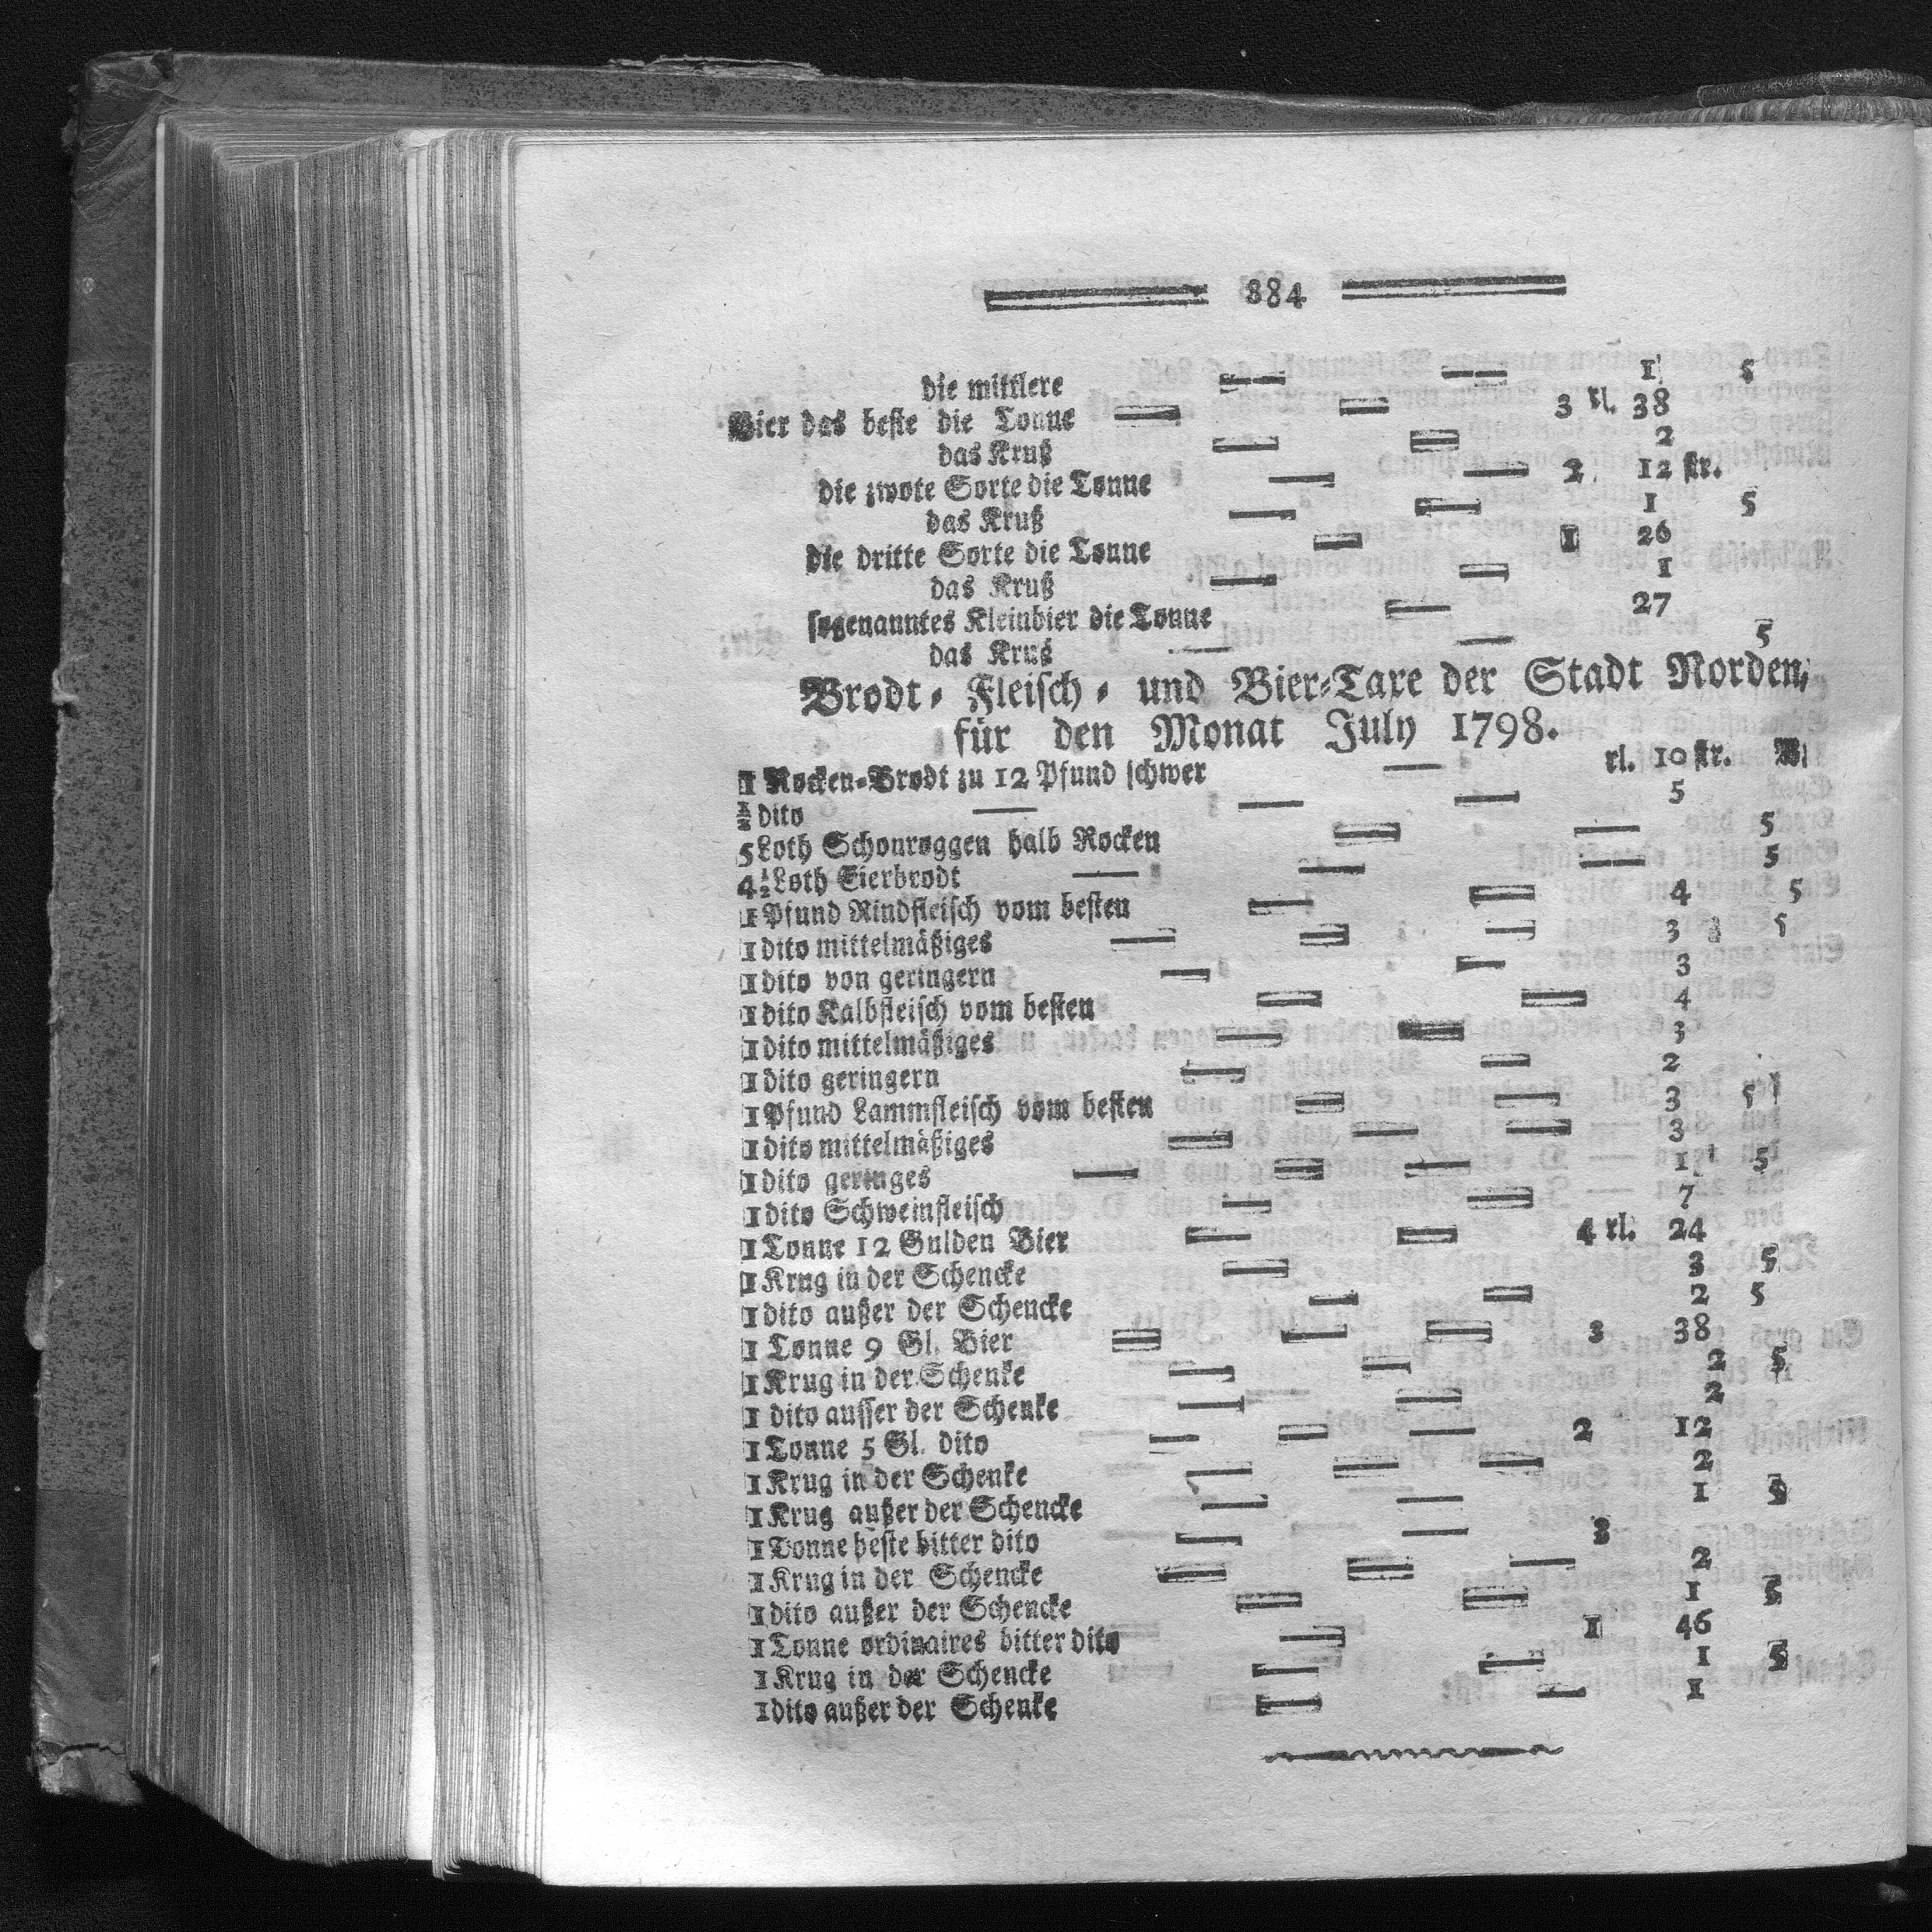 884
die mittlere — — 1 5
Bier das beste die Tonne — — 3 rl. 38
das Kruß — — 2
die zwote Sorte die Tonne — — 2 12 str.
das Kruß — — 1 5
die dritte Sorte die Tonne — 1 26
das Kruß — — 1
sogenanntes Kleinbier die Tonne — 27
das Krug — — 5
Brodt- Fleisch- und Bier-Taxe der Stadt Norden,
für den Monat July 1798.
1 Rocken-Brodt zu 12 Pfund schwer — rl. 10 str. W
½ dito — — — 5
5 Loth Schonroggen halb Rocken — — 5
4½ Loth Eierbrodt — — — 5
1 Pfund Rindfleisch vom besten — — 4 5
1 dito mittelmäßiges — — — 3 5
1 dito von geringern — — 3
1 dito Kalbfleisch vom besten — — 4
1 dito mittelmäßiges — — 3
1 dito geringern — — 2
1 Pfund Lammfleisch vom besten — — 3 5
1 dito mittelmäßiges — — — 3
1 dito geringes — — — 1 5
1 dito Schweinfleisch — — 7
1 Tonne 12 Gulden Bier — — 4 rl. 24
1 Krug in der Schencke — 3 5
1 dito außer der Schencke — — 2 5
1 Tonne 9 Gl. Bier — — — 3 38
1 Krug in der Schenke — — 2 5
1 dito ausser der Schenke — — 2
1 Tonne 5 Gl. dito — — — 2 12
1 Krug in der Schenke — — — 2
1 Krug außer der Schencke — — 1 5
1 Tonne beste bitter dito — — 3
1 Krug in der Schencke — — — 2
1 dito außer der Schencke — — 1 5
1 Tonne ordinaires bitter dito — 1 46
1 Krug in der Schencke — — 1 5
1 dito außer der Schenke — — 1